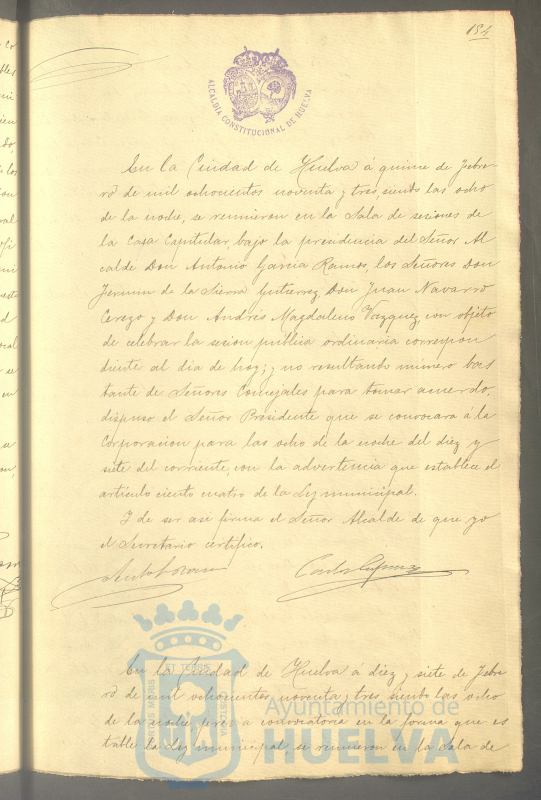 154
ALCALDÍA CONSTITUCIONAL DE HUELVA
En la Ciudad de Huelva á quince de Febre-
ro de mil ochocientos noventa y tres, siendo las ocho
de la noche, se reunieron en la Sala de sesiones de
la Casa Capitular, bajo la presidencia del Señor Al
calde Don Antonio García Ramos, los Señores Don
de la Sierra Gutierrez, Don Juan Navarro
Cerezo y Don Andrés Magdaleno Vazquez, con objeto
de celebrar la sesion publica ordinaria correspon
diente al dia de hoy; y no resultando número bas
tante de Señores Concejales para tomar acuerdo,
dispuso el Señor Presidente que se convocara á la
Corporacion para las ocho de la noche del diez y
siete del corriente, con la advertencia que establece el
artículo ciento cuatro de la Ley municipal.
Y de ser asi firma el Señor Alcalde de que yo
el Secretario certifico.
En la Ciudad de Huelva á diez y siete de Febre
ro de mil ochocientos noventa y tres siendo las ocho
de la noche, previa convocatoria en la forma que es
tablece la Ley municipal, se reunieron en la Sala de
Ayuntamiento de
HUELVA